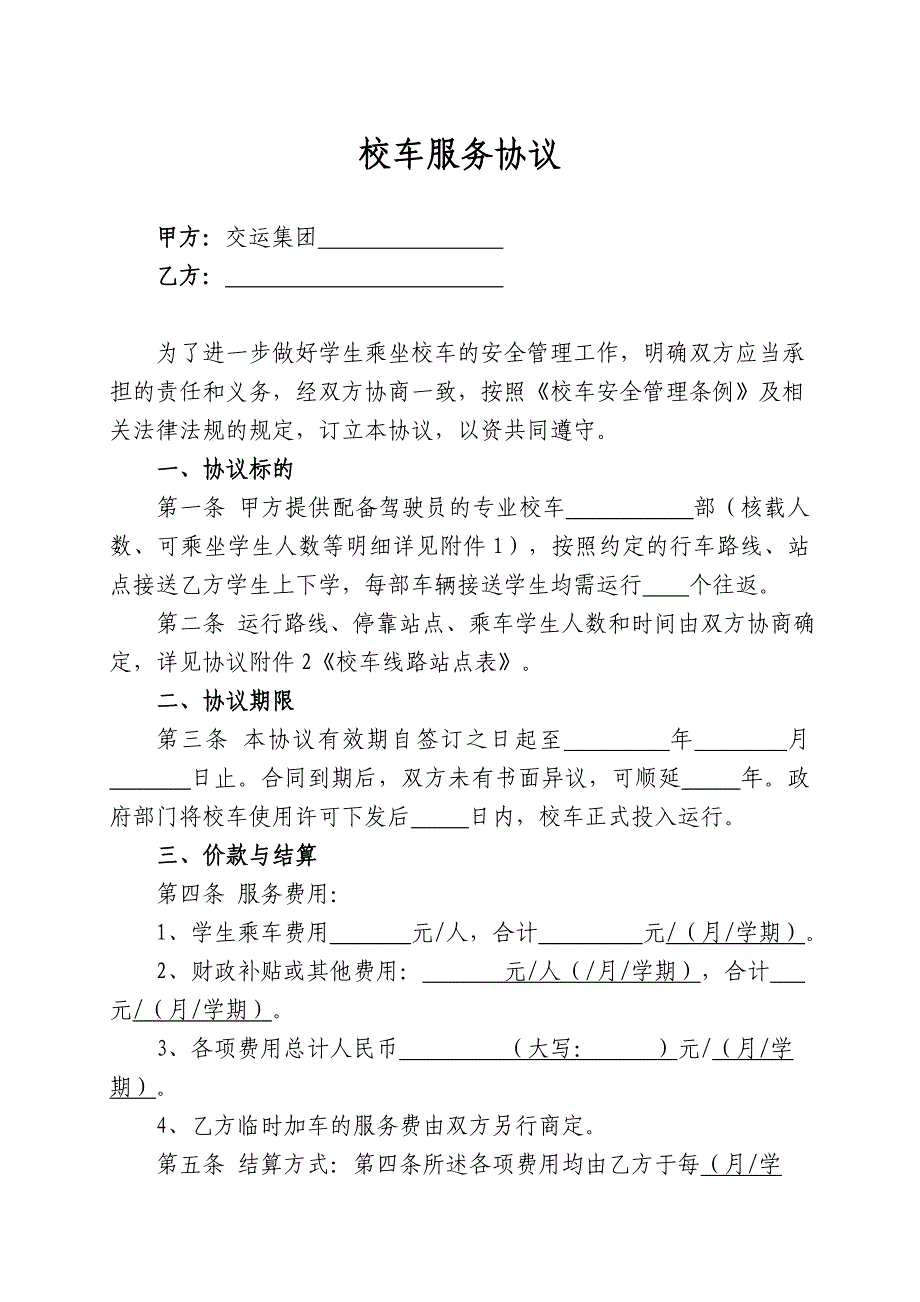 校车服务协议
甲方：交运集团________________
乙方：________________________
为了进一步做好学生乘坐校车的安全管理工作，明确双方应当承
担的责任和义务，经双方协商一致，按照《校车安全管理条例》及相
关法律法规的规定，订立本协议，以资共同遵守。
一、协议标的
第一条 甲方提供配备驾驶员的专业校车___________部（核载人
数、可乘坐学生人数等明细详见附件1），按照约定的行车路线、站
点接送乙方学生上下学，每部车辆接送学生均需运行____个往返。
第二条 运行路线、停靠站点、乘车学生人数和时间由双方协商确
定，详见协议附件2《校车线路站点表》。
二、协议期限
第三条 本协议有效期自签订之日起至_________年________月
_______日止。合同到期后，双方未有书面异议，可顺延_____年。政
府部门将校车使用许可下发后_____日内，校车正式投入运行。
三、价款与结算
第四条 服务费用：
1、学生乘车费用_______元/人，合计_________元/（月/学期）。
2、财政补贴或其他费用：_______元/人（/月/学期），合计___
元/（月/学期）。
3、各项费用总计人民币_________（大写：______）元/（月/学
期）。
4、乙方临时加车的服务费由双方另行商定。
第五条 结算方式：第四条所述各项费用均由乙方于每（月/学